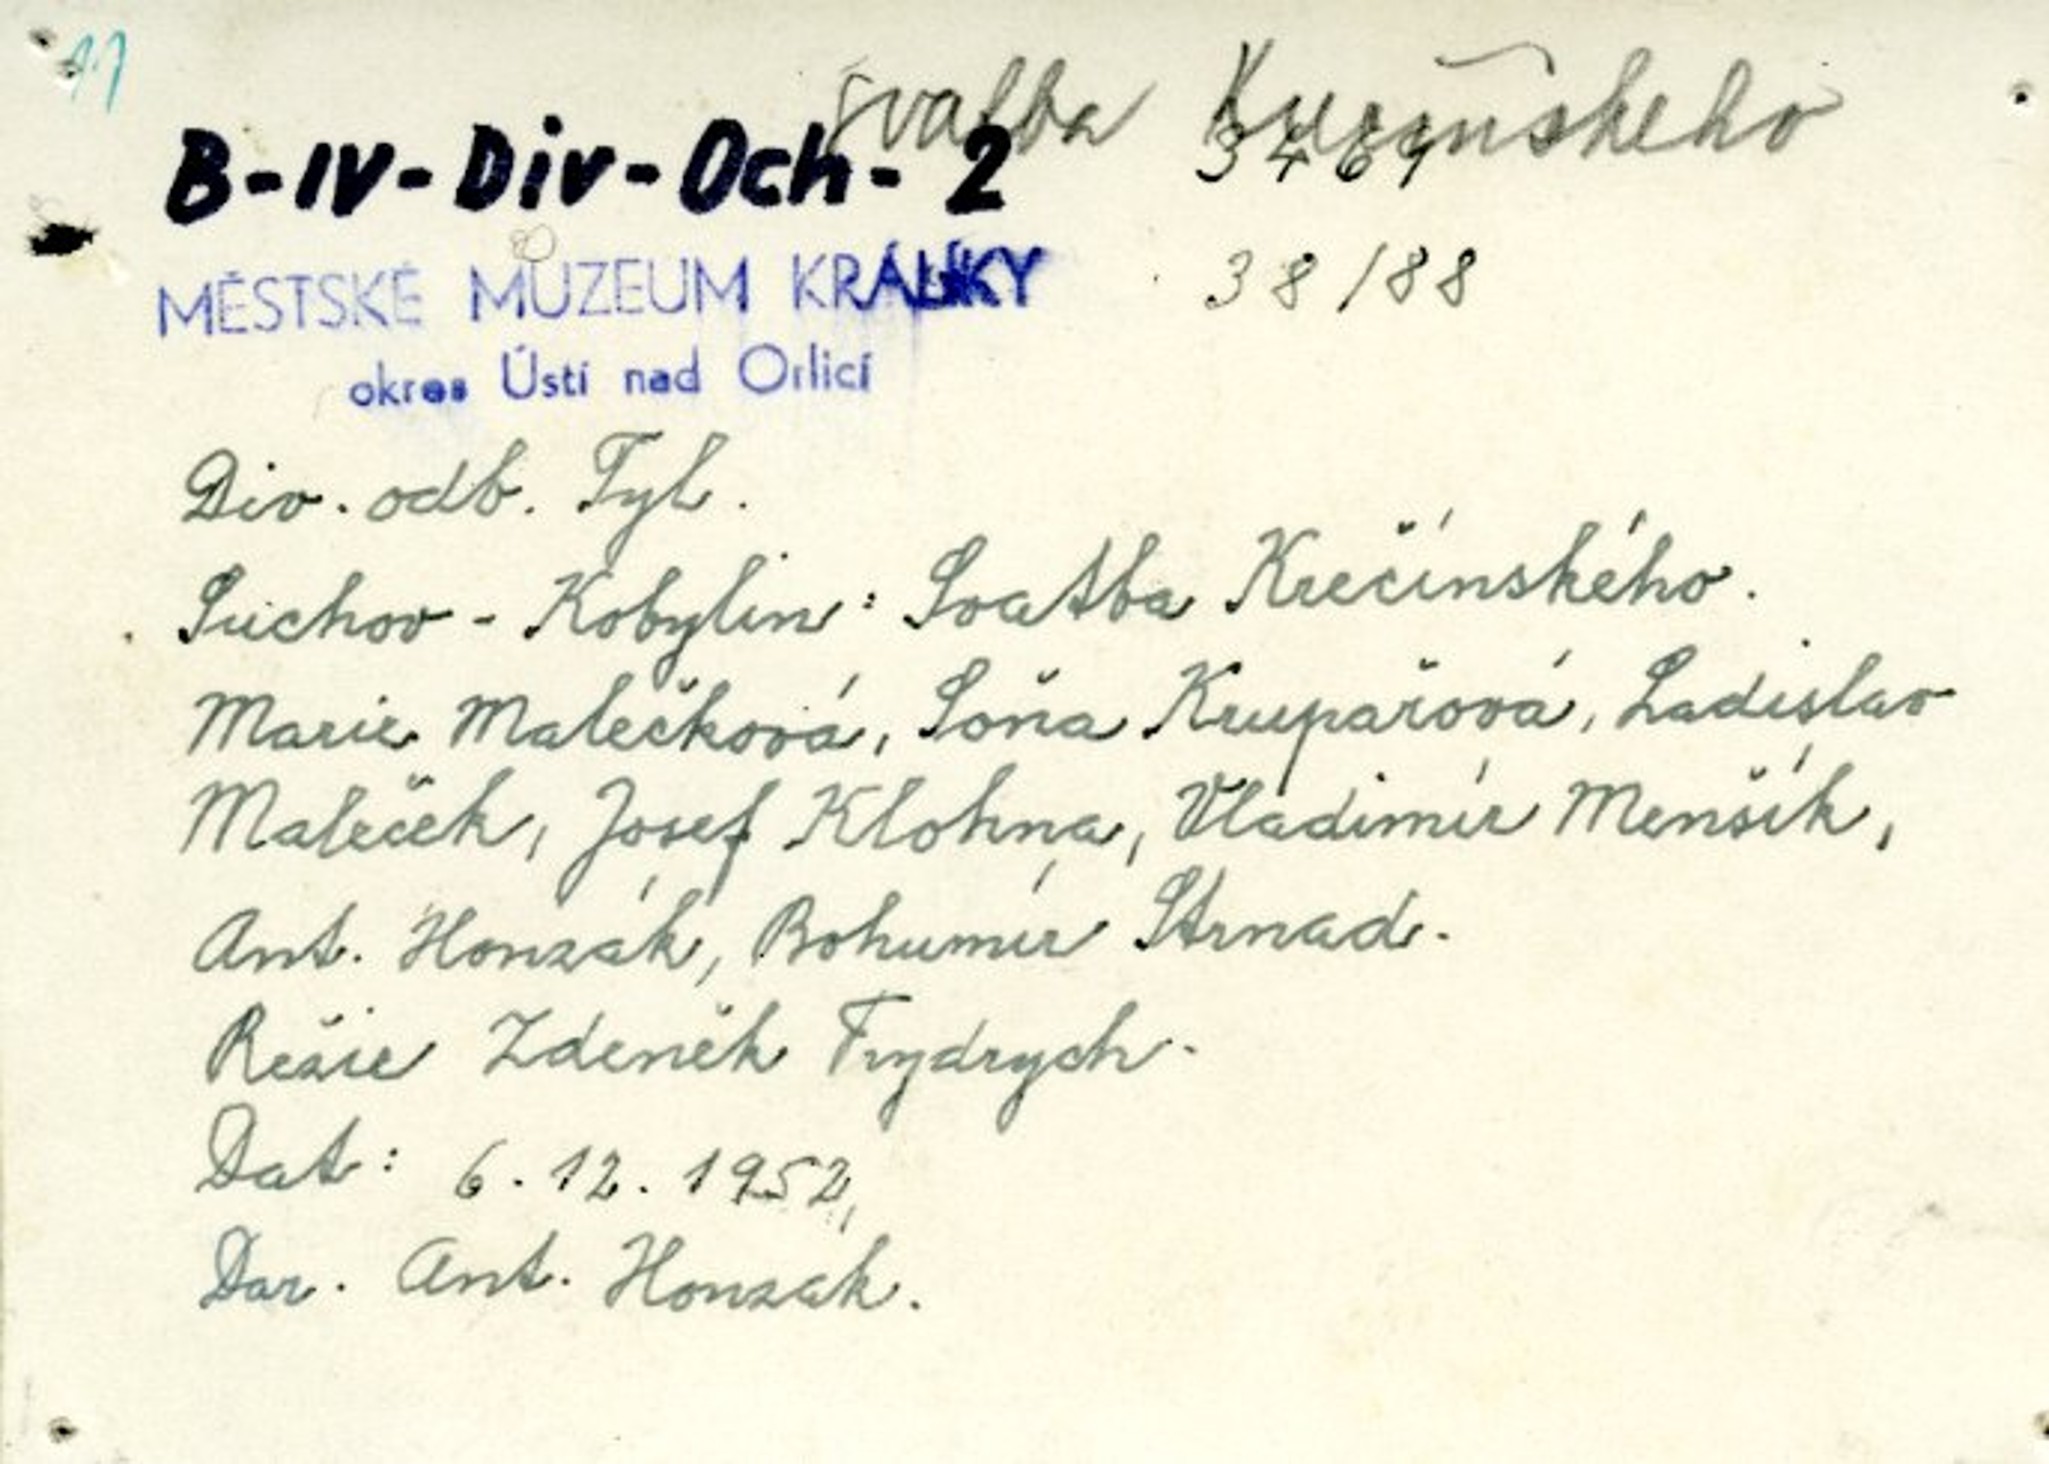 11
svatba Krečinskeho
B-IV-Div-Och-2 3469
MĚSTSKÉ MUZEUM KRÁLÍKY 38/88
okres Ústí nad Orlicí
Div. odb. Tyl.
Suchov - Kobylin: Svatba Krečínského.
Marie Malečková, Soňa Krupařová, Ladislav
Maleček, Josef Klohna, Vladimír Menšík,
Ant. Honzák, Bohumír Strnad.
Režie Zdeněk Frydrych.
Dat: 6.12.1952,
Dar. Ant. Honzák.